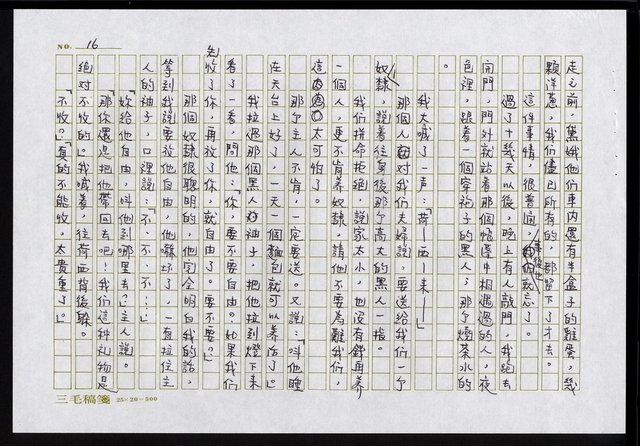 NO. 16
走之前，集娥他們車內還有半盒子的雞蛋，幾
顆洋蔥，我們儘己所有的，都留下了才去。
這件事情，很普通，事後也就忘了。
過了十幾天以後，晚上有人敲門，我跑去
開門，門外就站着那個帳篷中相遇過的人，夜
色裡，跟着一個穿袍子的黑人；那個燒茶水的
。
我大喊了一声：「荷——西——來——」
那個人對我們夫婦說，要送給我們一個
奴隸，說着往身後那個高大的黑人一指。
我們拼命拒絕，說家太小，也沒有錢再養
一個人，更不肯养奴隸，請他不要為難我們，
這太可怕了。
那個主人不肯，一定要送。又說：「叫他睡
在天台上好了，一天一個麵包就可以养活了。」
我拉過那個黑人袖子，把他拉到燈下來
看了一看，問他：「你，要不要自由？如果我們
先收了你，再放了你，就自由了。要不要？」
那個奴隸很聰明的，他完全明白我的話，
等到我說要放他自由，他嚇坏了，一直拉住主
人的袖子，口裡說：「不、不、不…」
「妳給他自由，叫他到哪里去？」主人說。
「那你還是把他帶回去吧！我們这種礼物是
絕对不收的。」我喊着，往荷西背後躲。
「不收？」「真的不能收，太贵重了。」
三毛稿箋 25×20=500